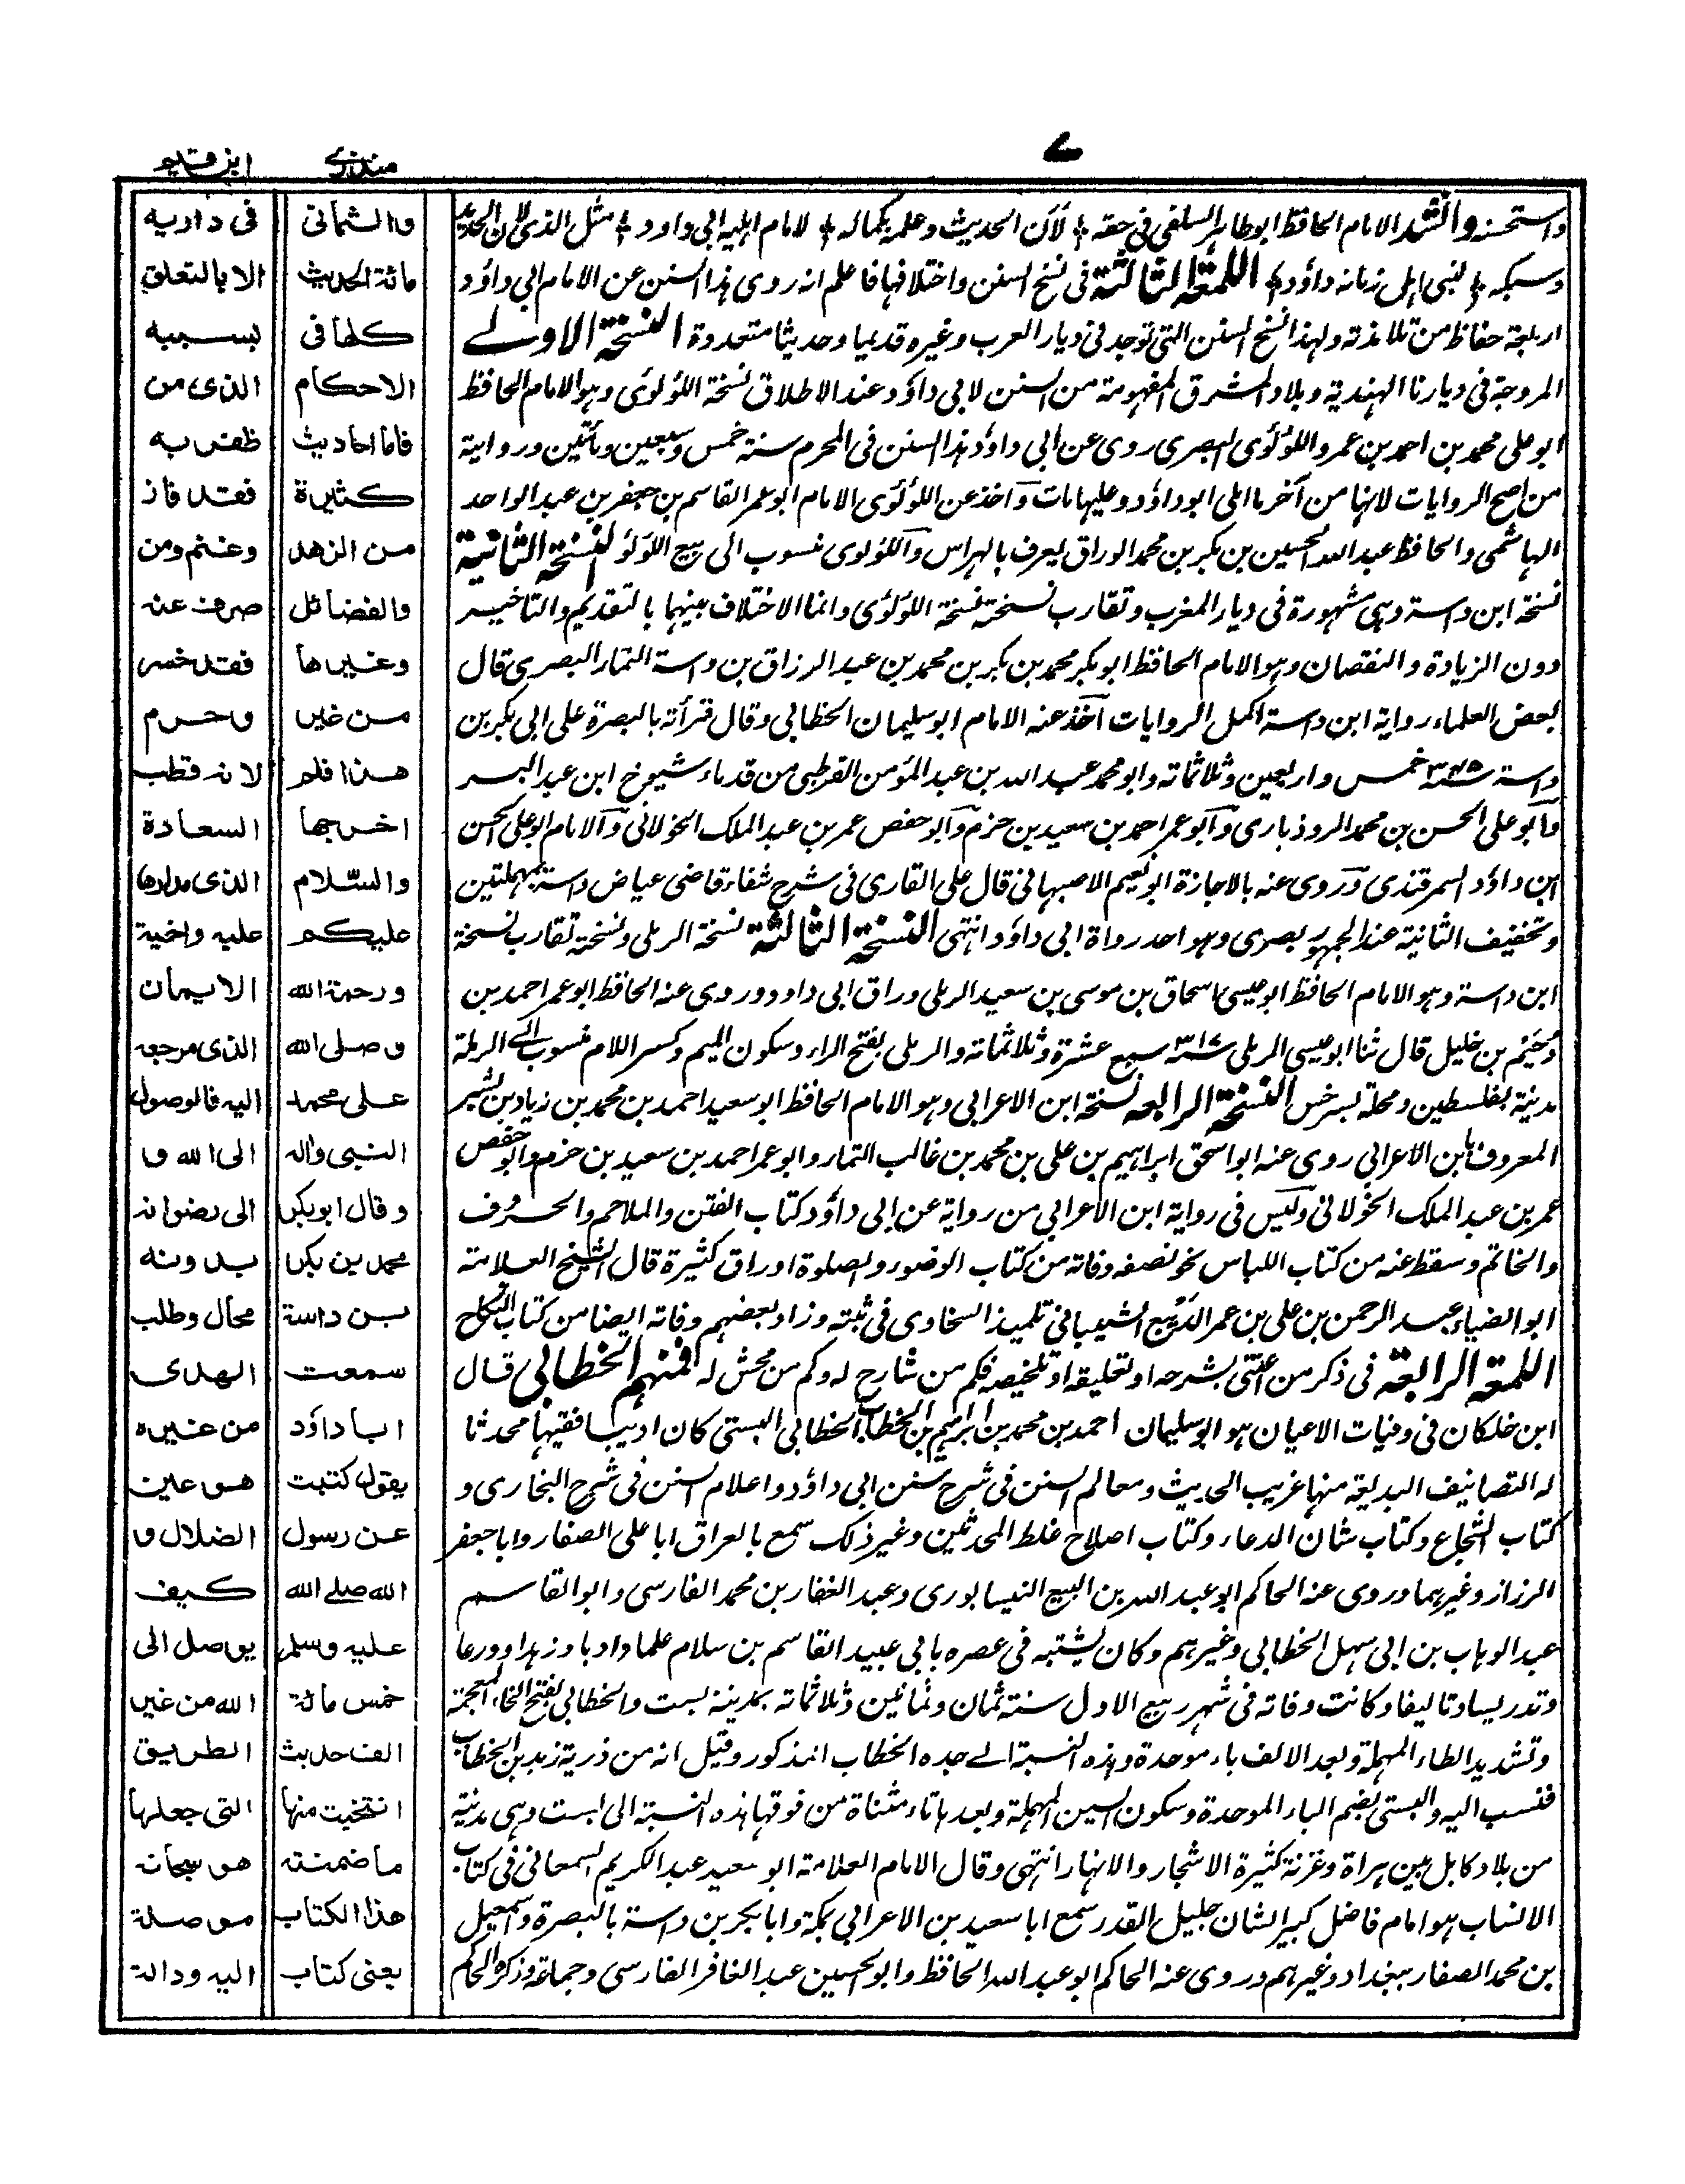 ٧
منذري
ابن قيم
واستحسنه وانشد الامام الحافظ ابو طاهر السلفي في حقه لان الحديث وعلمه بكماله لامام اهليه ابي داود مثل الذي لان الحديد
وسبكه لنبي اهل زمانه داؤد اللمعة الثالثة في نسخ السنن واختلافها فاعلم انه روى هذا السنن عن الامام ابي داؤد
اربعة حفاظ من تلامذته ولهذا نسخ السنن التي توجد في ديار العرب وغيره قديما وحديثا متعددة النسخة الاولے
المروجة في ديارنا الهندية وبلاد المشرق المفهومة من السنن لابي داؤد عند الاطلاق نسخة اللؤلوئ وهو الامام الحافظ
ابو على محمد بن احمد بن عمرو اللؤلؤى البصرى روى عن ابي داود هذا السنن فى المحرم سنة خمس وسبعين ومأتين ورواية
من اصح الروايات لانها من آخر ما املى ابو داؤد وعليها مات واخذ عن اللؤلؤى الامام ابو عمر القاسم بن جعفر بن عبد الواحد
الهاشمى والحافظ عبد الله الحسين بن بكر بن محمد الوراق يعرف بالهراس واللؤلوى منسوب الى بيع اللؤلؤ النسخة الثانية
نسخة ابن داسة وهى مشهورة فى ديار المغرب وتقارب نسخته نسخة اللؤلؤى وانما الاختلاف بينهما بالتقديم والتاخير
دون الزيادة والنقصان وهو الامام الحافظ ابو بكر محمد بن بكر بن محمد بن عبد الرزاق بن داسة التمار البصرى قال
بعض العلماء رواية ابن داسة اكمل الروايات اخذ عنه الامام ابو سليمان الخطابي وقال قرأته بالبصرة على ابى بكر بن
داسة سنة ٣٤٥ خمس واربعين وثلاثمائة وابو محمد عبد الله بن عبد المؤمن القرطبى من قدماء شيوخ ابن عبد البر
وابو على الحسن بن محمد الروذبارى وابو عمر احمد بن سعيد بن حزم وابو حفص عمر بن عبد الملك الخولانى والامام ابو على الحسن
ابن داؤد السمرقندى وروى عنه بالاجازة ابو نعيم الاصبهانى قال على القارى فى شرح شفاء قاضى عياض داسة بمهملتين
وتخفيف الثانية عند الجمهور بصرى وهو احد رواة ابى داؤد انتهى النسخة الثالثة نسخة الرملى ونسخة تقارب نسخة
ابن داسة وهو الامام الحافظ ابو عيسى اسحاق بن موسى بن سعيد الرملى وراق ابى داود وروى عنه الحافظ ابو عمر احمد بن
دحيم بن خليل قال ثنا ابو عيسى الرملى سنة ٣١٧ سبع عشرة وثلاثمائة والرملى بفتح الراء وسكون الميم وكسر اللام منسوب الى الرملة
مدينة بفلسطين ومحلة بسرخس النسخة الرابعة نسخة ابن الاعرابي وهو الامام الحافظ ابو سعيد احمد بن محمد بن زياد بن بشير
المعروف بابن الاعرابي روى عنه ابو اسحق ابراهيم بن على بن محمد بن غالب التمار وابو عمر احمد بن سعيد بن حزم وابو حفص
عمر بن عبد الملك الخولانى وليس فى رواية ابن الاعرابي من رواية عن ابى داؤد كتاب الفتن والملاحم والحروف
والخاتم وسقط عنه من كتاب اللباس نحو نصفه وفاته من كتاب الوضوء والصلوة اوراق كثيرة قال الشيخ العلامة
ابو الضياء عبد الرحمن بن على بن عمر الديبع الشيبانى تلميذ السخاوى فى ثبته وزاد بعضهم وفاته ايضا من كتاب النكاح
اللمعة الرابعة فى ذكر من اعتنى بشرحه او تعليقه او تلخيصه فكم من شارح له وكم من محش له فمنهم الخطابي قال
ابن خلكان فى وفيات الاعيان هو ابو سليمان احمد بن محمد بن ابراهيم بن الخطاب الخطابي البستى كان اديبا فقيها محدثا
له التصانيف البديعة منها غريب الحديث ومعالم السنن فى شرح سنن ابى داؤد واعلام السنن فى شرح البخارى و
كتاب الشجاع وكتاب شان الدعاء وكتاب اصلاح غلط المحدثين وغير ذلك سمع بالعراق ابا على الصفار وابا جعفر
الرزاز وغيرهما وروى عنه الحاكم ابو عبد الله بن البيع النيسابورى وعبد الغفار بن محمد الفارسى وابو القاسم
عبد الوهاب بن ابى سهل الخطابي وغيرهم وكان يشتبه فى عصره بابي عبيد القاسم بن سلام علما وادبا وزهدا وورعا
وتدريسا وتاليفا وكانت وفاته فى شهر ربيع الاول سنة ثمان وثمانين وثلاثمائة بمدينة بست والخطابي بفتح الخاء المعجمة
وتشديد الطاء المهملة وبعد الالف باء موحدة وهذه النسبة الے جده الخطاب المذكور وقيل انه من ذرية زيد بن الخطاب
فنسب اليه والبستى بضم الباء الموحدة وسكون السين المهملة وبعدها تاء مثناة من فوقها هذه النسبة الى بست وهى مدينة
من بلاد كابل بين هراة وغزنة كثيرة الاشجار والانهار انتهى وقال الامام العلامة ابو سعيد عبد الكريم السمعانى فى كتاب
الانساب هو امام فاضل كبير الشان جليل القدر سمع ابا سعيد بن الاعرابي بمكة وابا بكر بن داسة بالبصرة واسمعيل
بن محمد الصفار ببغداد وغيرهم وروى عنه الحاكم ابو عبد الله الحافظ وابو الحسين عبد الغافر الفارسى وجماعة وذكره الحاكم
والثمانى
مائة الحديث
كلها فى
الاحكام
فاما احاديث
كثيرة
من الزهد
والفضائل
وغيرها
من غير
هذا فلم
اخرجها
والسّلام
عليكم
ورحمة الله
وصلى الله
على محمد
النبى واله
وقال ابو بكر
محمد بن بكر
بن داسة
سمعت
ابا داؤد
يقول كتبت
عن رسول
الله صلے الله
عليه وسلم
خمس مائة
الف حديث
انتخبت منها
ما ضمنته
هذا الكتاب
يعنى كتاب
فى داريه
الا بالتعلق
بسببه
الذى من
ظفر به
فقد فاز
وغنم ومن
صرف عنه
فقد خسر
وحرم
لانه قطب
السعادة
الذى مدارها
عليه واخية
الايمان
الذى مرجعه
اليه فالوصول
الى الله و
الى رضوانه
بدونه
محال وطلب
الهدى
من غيره
هو عين
الضلال و
كيف
يوصل الى
الله من غير
الطريق
التى جعلها
هو سبحانه
موصلة
اليه ودالة